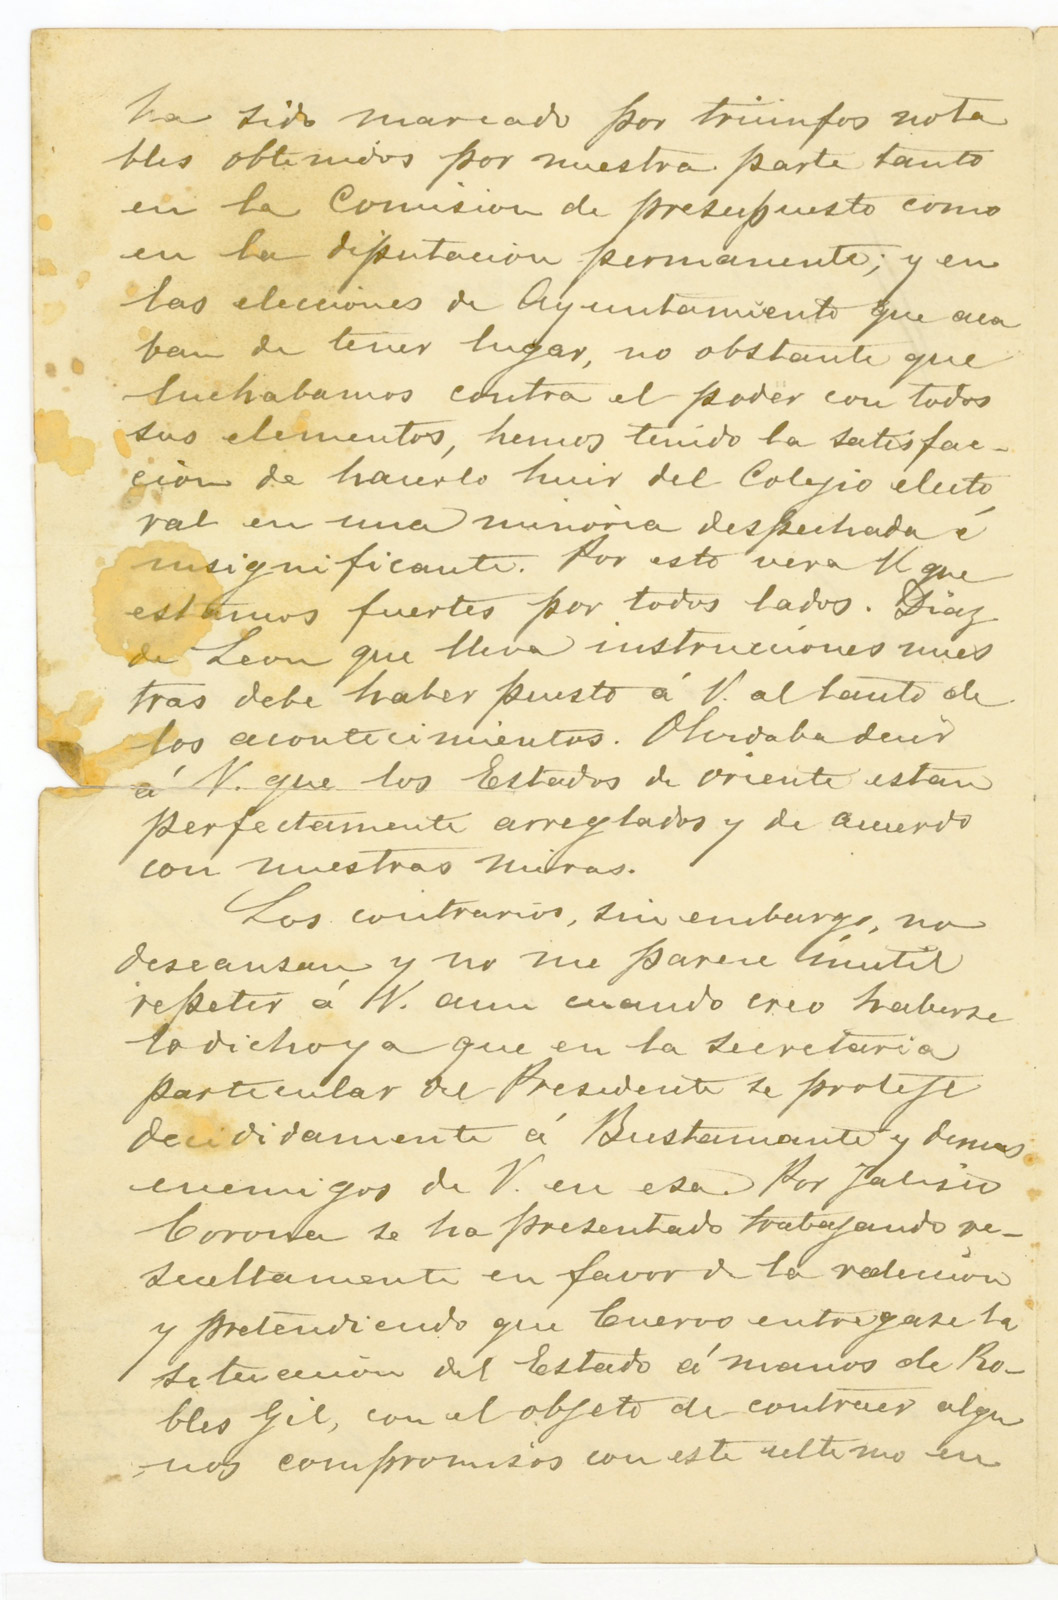 ha sido marcado por triunfos nota
bles obtenidos por nuestra parte tanto
en la Comision de presupuesto como
en la diputacion permanente; y en
las elecciones de Ayuntamiento que aca
ban de tener lugar, no obstante que
luchabamos contra el poder con todos
sus elementos, hemos tenido la satisfac-
ción de hacerlo huir del Colegio electo
ral en una minoria despechada é
insignificante. Por esto vera V. que
estamos fuertes por todos lados. Diaz
de Leon que lleva instrucciones nues
tras debe haber puesto á V. al tanto de
los acontecimientos. Olvidaba decir
á V. que los Estados de oriente estan
perfectamente arreglados y de acuerdo
con nuestras miras.
Los contrarios, sin embargo, no
descansan y no me parece inutil
repetir á V. aun cuando creo haberse
lo dicho ya que en la secretaria
particular del Presidente se proteje
decididamente á Bustamante y demas
enemigos de V. en esa. Por Jalisco
Corona se ha presentado trabajando re-
sueltamente en favor de la reelección
y pretendiendo que Cuervo entregase la
situación del Estado á manos de Ro-
bles Gil, con el objeto de contraer algu
nos compromisos con este ultimo en